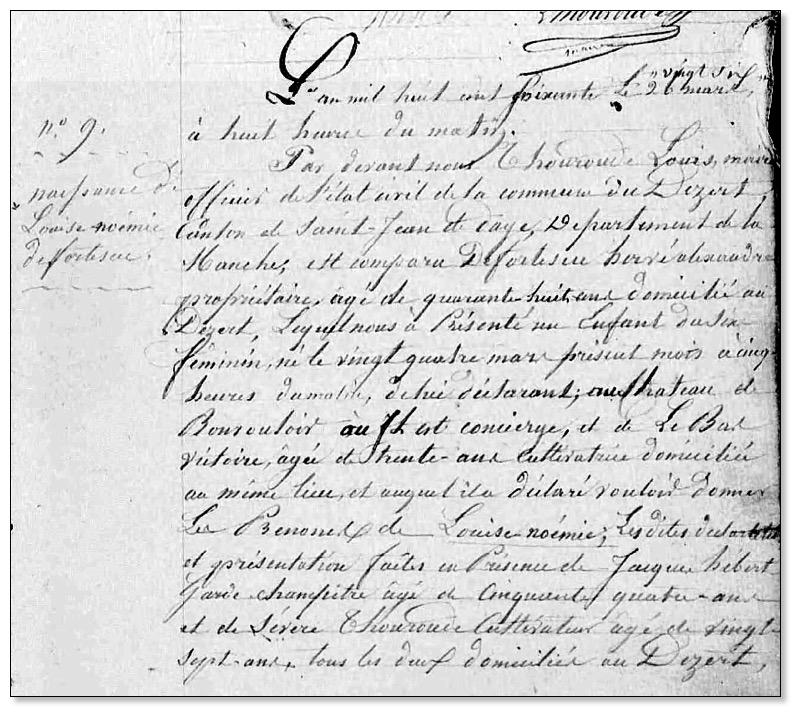 L'an mil huit cent soixante le vingt six
26 mars,
à huit heures du matin.
n.o 9.
naissance de
Louise noémie
defortescu.
Par devant nous Thouroude Louis, maire
officier de l'état civil de la commune du Dézert,
Canton de Saint-Jean de daye, Département de la
Manche, est comparu Defortescu hervé alexandre
propriétaire, âgé de quarante-huit ans domicilié au
Dézert, Lequel nous à Présenté un Enfant du sexe
féminin, né le vingt quatre mars présent mois à cinq
heures du matin, de lui déclarant, au Chateau de
Bonvouloir où il est concierge, et de Le Bas
Victoire, âgée de trente-ans Cultivatrice domiciliée
au même lieu, et auquel il a déclaré vouloir donner
Les Prénoms de Louise noémie; Les dites declaration
et présentation faites en Présence de Jacques hébert
Garde champêtre âgé de Cinquante quatre-ans
et de Sévère Thouroude Cultivateur âgé de vingt-
sept-ans, tous les deux domiciliés au Dézert,